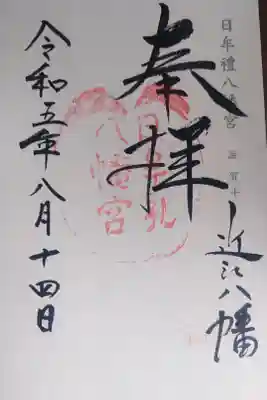 日牟禮八幡宮
近江八幡
奉拝
日牟禮
八幡宮
令和五年八月十四日